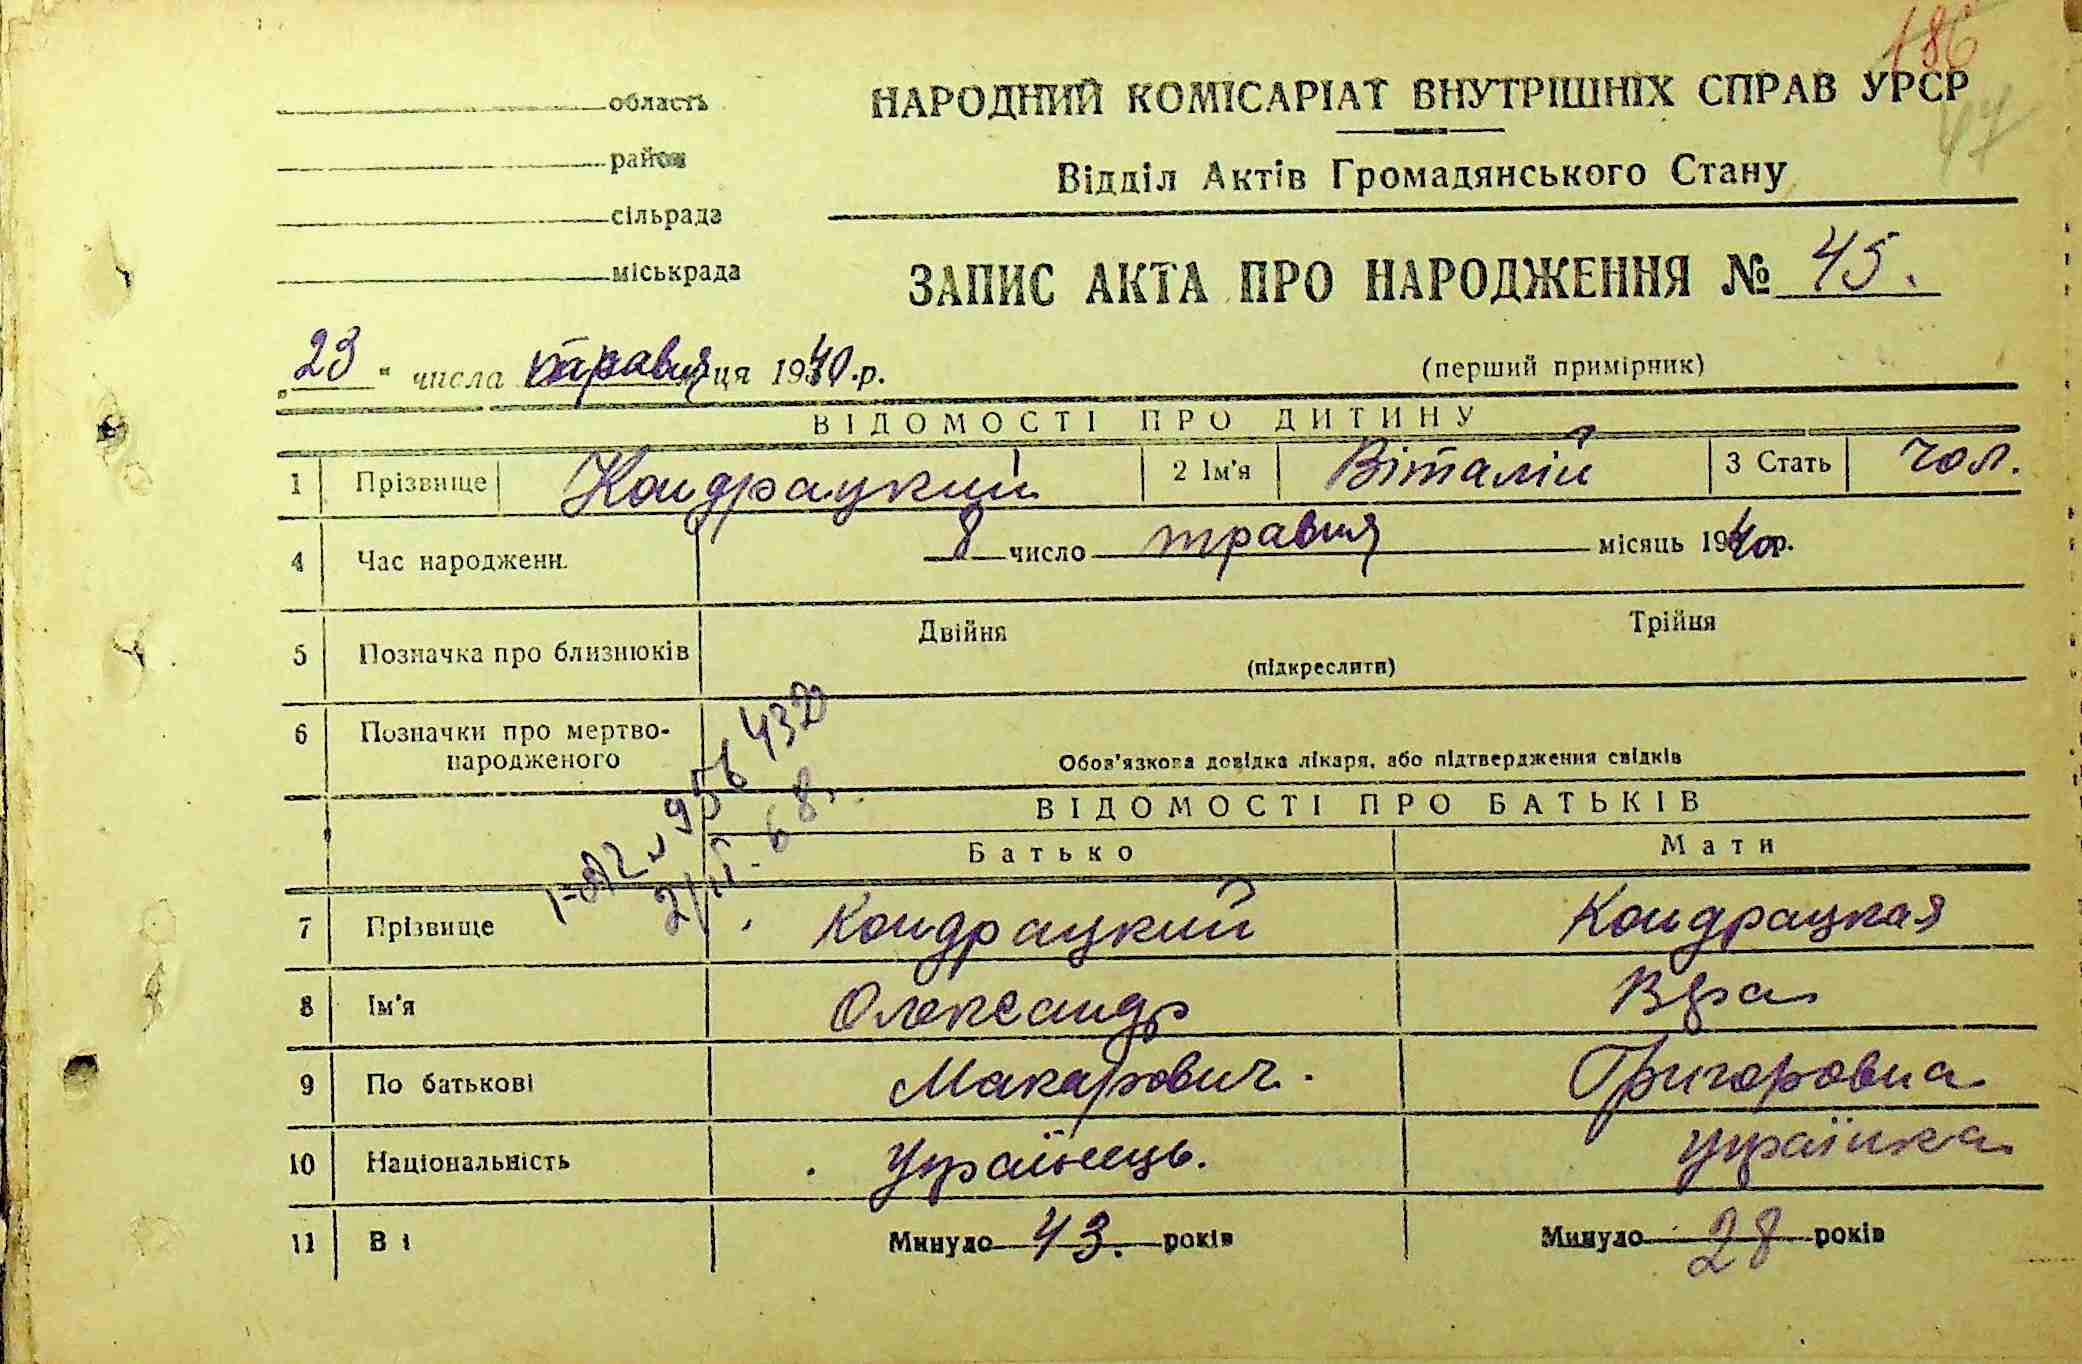 186
47
область
район
сільрада
міськрада
НАРОДНИЙ КОМІСАРІАТ ВНУТРІШНІХ СПРАВ УРСР
Відділ Актів Громадянського Стану
ЗАПИС АКТА ПРО НАРОДЖЕННЯ № 45.
„23" числа травня ця 1940.р.
(перший примірник)
ВІДОМОСТІ ПРО ДИТИНУ
1 Прізвище Кондрацкий 2 Ім'я Віталій 3 Стать чол.
4 Час народженн. 8 число травня місяць 1940р.
5 Позначка про близнюків Двійня Трійня
(підкреслити)
6 Позначки про мертво-
народженого
Обов'язкова довідка лікаря, або підтвердження свідків
956 432
68.
ВІДОМОСТІ ПРО БАТЬКІВ
Батько Мати
7 Прізвище Кондрацкий Кондрацкая
8 Ім'я Олександр Вєра
9 По батькові Макарович. Григоровна
10 Національність Українець. українка
11 Ві Минуло 43. років Минуло 28 років